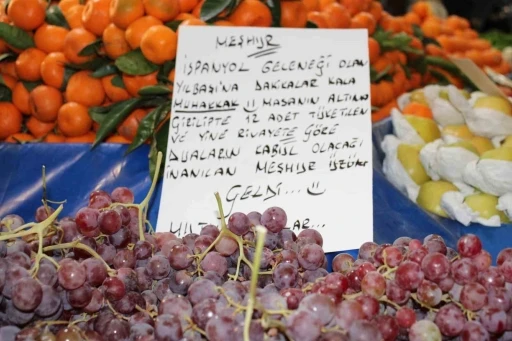 MEŞHUR
İSPANYOL GELENEĞİ OLAN
YILBAŞINA DAKİKALAR KALA
MUHAKKAK MASANIN ALTINDA
GİZLİCE 12 ADET TÜKETİLEN
VE YİNE RİVAYETE GÖRE
DUALARIN KABUL OLACAĞI
İNANILAN MEŞHUR ÜZÜM
GELDİ...